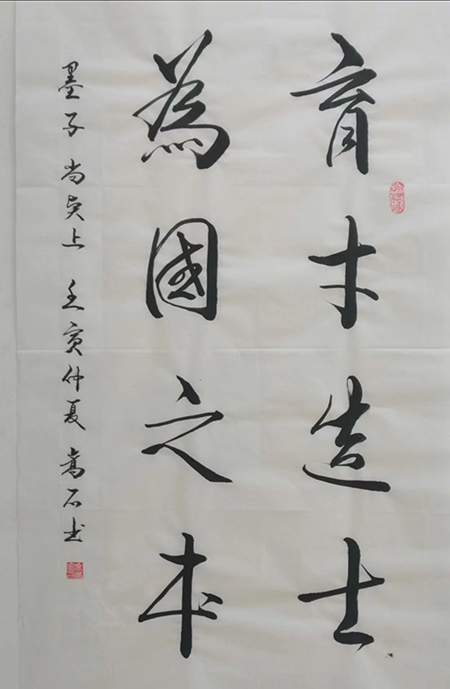 育才造士
為國之本
墨子尚賢上 壬寅仲夏 嵩石书